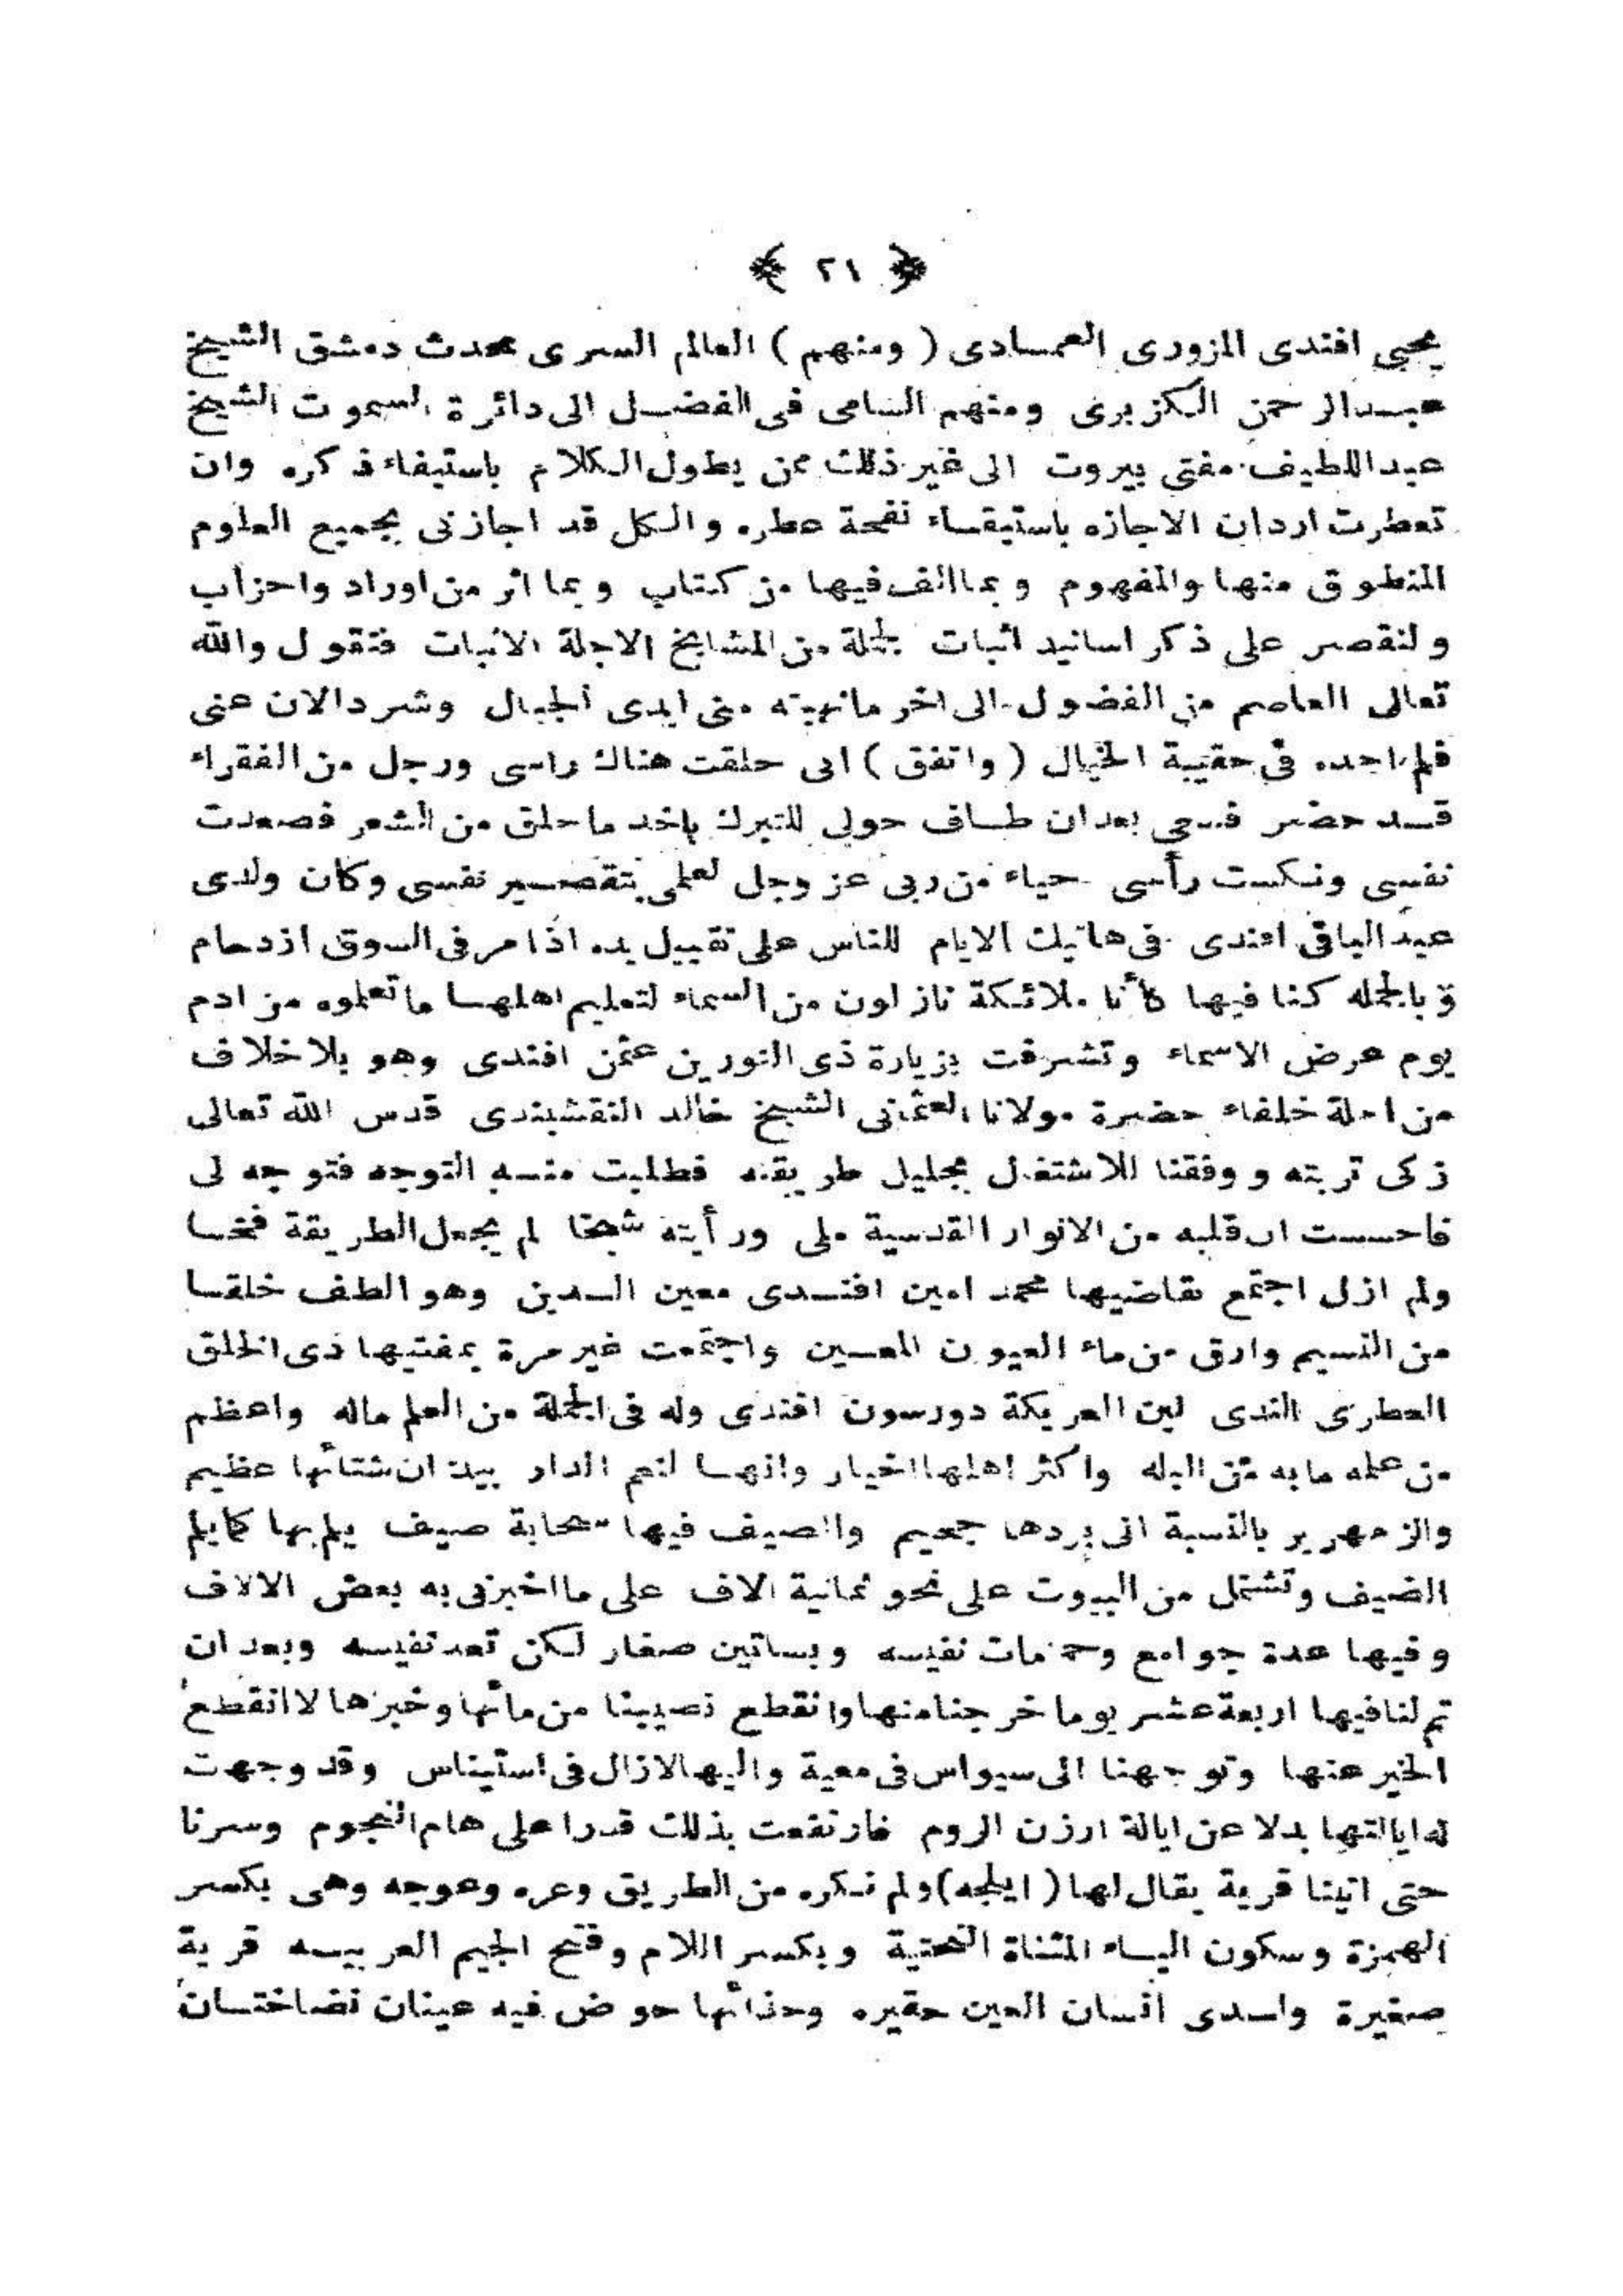 ﴿ ٢١ ﴾
يحيى افندى المزورى العمادى ( ومنهم ) العالم السرى محدث دمشق الشيخ
عبدالرحمن الكزبرى ومنهم السامى فى الفضل الى دائرة السموت الشيخ
عبداللطيف مفتى بيروت الى غير ذلك ممن يطول الكلام باستيفاء ذكره وان
تعطرت اردان الاجازه باستيقاء نفحة عطره والكل قد اجازنى بجميع العلوم
المنطوق منها والمفهوم وبما الف فيها من كتاب وبما اثر من اوراد واحزاب
ولنقصر على ذكر اسانيد اثبات لجملة من المشايخ الاجلة الاثبات فنقول والله
تعالى العاصم من الفضول الى اخر ما نهبته منى ايدى الجبال وشرد الان عنى
فلم اجده فى حقيبة الخيال ( واتفق ) انى حلقت هناك راسى ورجل من الفقراء
قد حضر فسحى بعد ان طاف حولى للتبرك باخذ ما حلق من الشعر فصعدت
نفسى ونكست رأسى حياء من ربى عز وجل لعلمى بتقصير نفسى وكان ولدى
عبد الباقى افندى فى هاتيك الايام للناس على تقبيل يده اذا مر فى السوق ازدحام
وبالجمله كنا فيها كأنا ملائكة نازلون من السماء لتعليم اهلها ما تعلموه من ادم
يوم عرض الاسماء وتشرفت بزيارة ذى النورين عثمن افندى وهو بلا خلاف
من اجلة خلفاء حضرة مولانا العثمانى الشيخ خالد النقشبندى قدس الله تعالى
زكى تربته ووفقنا للاشتغل بجليل طريقته فطلبت منه التوجه فتوجه لى
فاحسست ان قلبه من الانوار القدسية ملى ورأيته شيخا لم يجعل الطريقة فخا
ولم ازل اجتمع بقاضيها محمد امين افندى معين الدين وهو الطف خلقا
من النسيم وارق من ماء العيون المعين واجتمعت غير مرة بمفتيها ذى الخلق
العطرى الندى لين العريكة دورسون افندى وله فى الجملة من العلم ماله واعظم
من علمه ما به من البله واكثر اهلها اخيار وانها لنعم الدار بيد ان شتائها عظيم
والزمهرير بالنسبة الى بردها جحيم والصيف فيها سحابة صيف يلم بها كما يلم
الضيف وتشتمل من البيوت على نحو ثمانية الاف على ما اخبرنى به بعض الالاف
وفيها عدة جوامع وحمامات نفيسه وبساتين صغار لكن تعد نفيسه وبعد ان
تم لنا فيها اربعة عشر يوما خرجنا منها وانقطع نصيبنا من مائها وخبزها لا انقطع
الخير عنها وتوجهنا الى سيواس فى معية واليها لازال فى استيناس وقد وجهت
له ايالتها بدلا عن ايالة ارزن الروم فارتفعت بذلك قدرا على هام النجوم وسرنا
حتى اتينا قرية يقال لها ( ايلجه ) ولم نكره من الطريق وعره وعوجه وهى بكسر
الهمزة وسكون الياء المثناة التحتية وبكسر اللام وفتح الجيم العربيه قرية
صغيرة واسدى انسان العين حقيره وحذائها حوض فيه عينان نضاختان